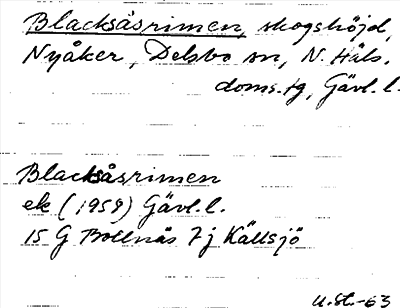 Blacksåsrimen, skogshöjd,
Nyåker, Delsbo sn, N. Häls.
doms.tg, Gävl. l.
Blacksåsrimen
ek (1959) Gävl. l.
15 G Bollnäs 7j Källsjö
U.St.-63